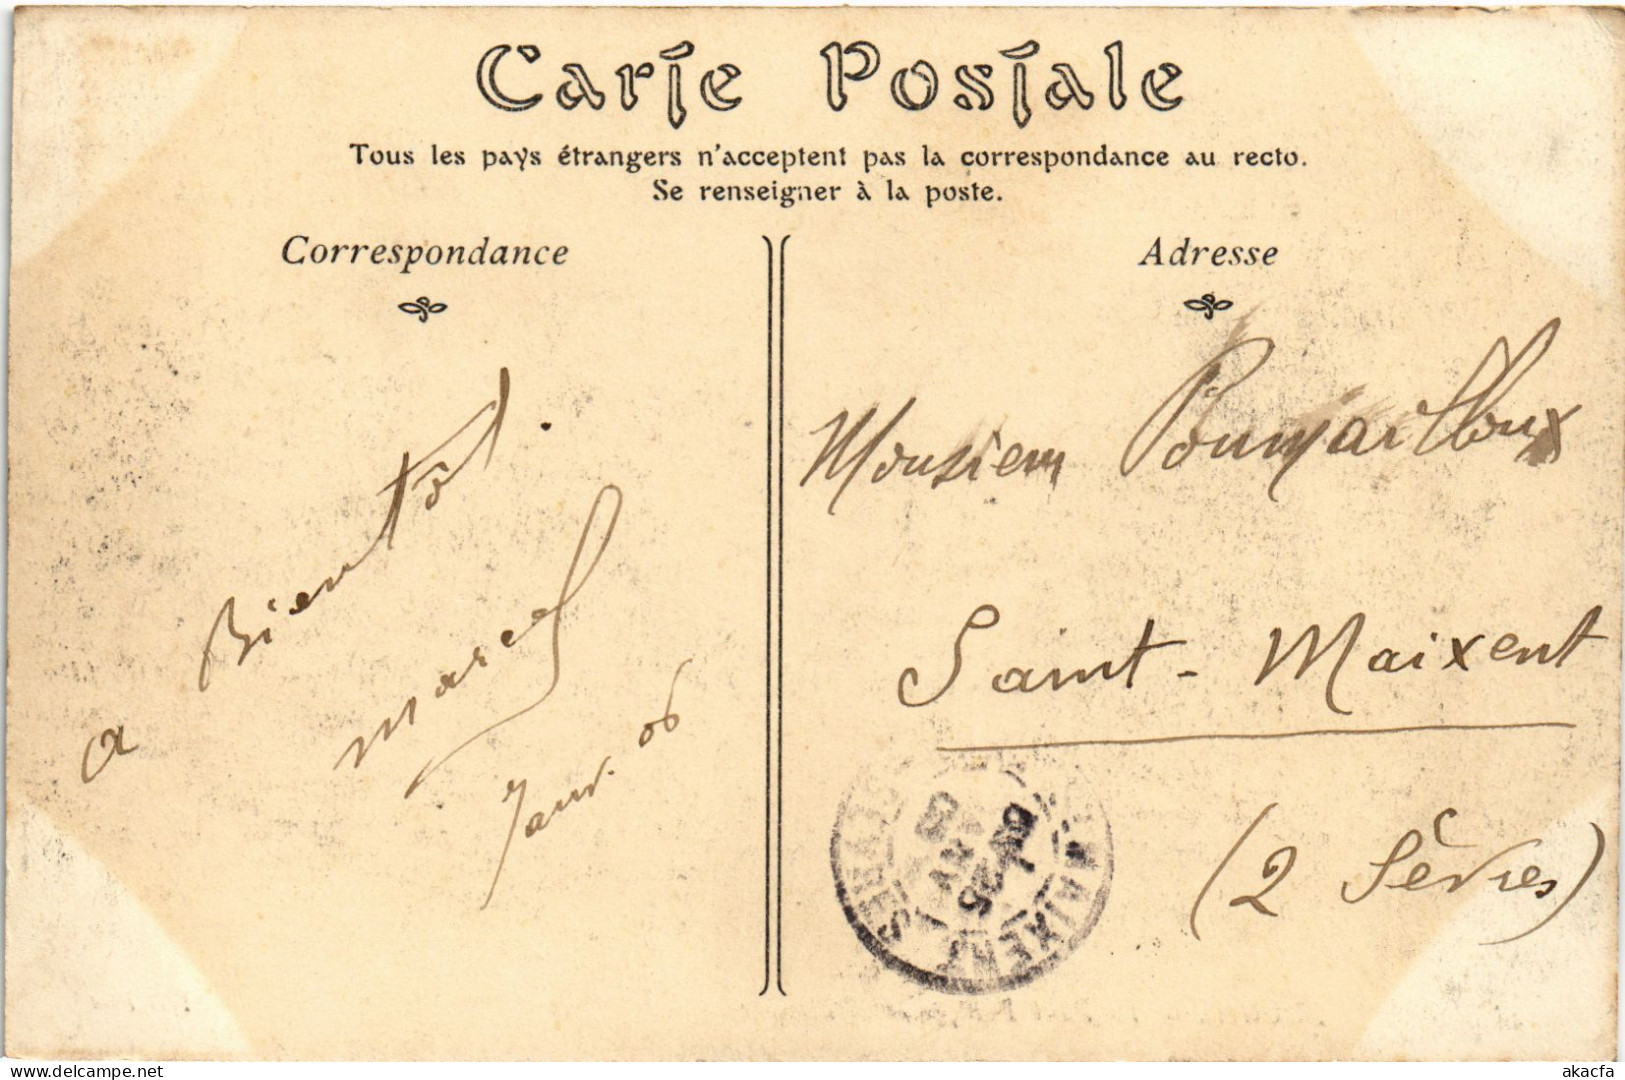 Carte Postale
Tous les pays étrangers n'acceptent pas la correspondance au recto.
Se renseigner à la poste.
Correspondance
Adresse
a Bientôt.
Marcel
Janv. 06
Monsieur
Saint-Maixent
(2 Sèvres)
MAIXENT
SEVRES
akacfa